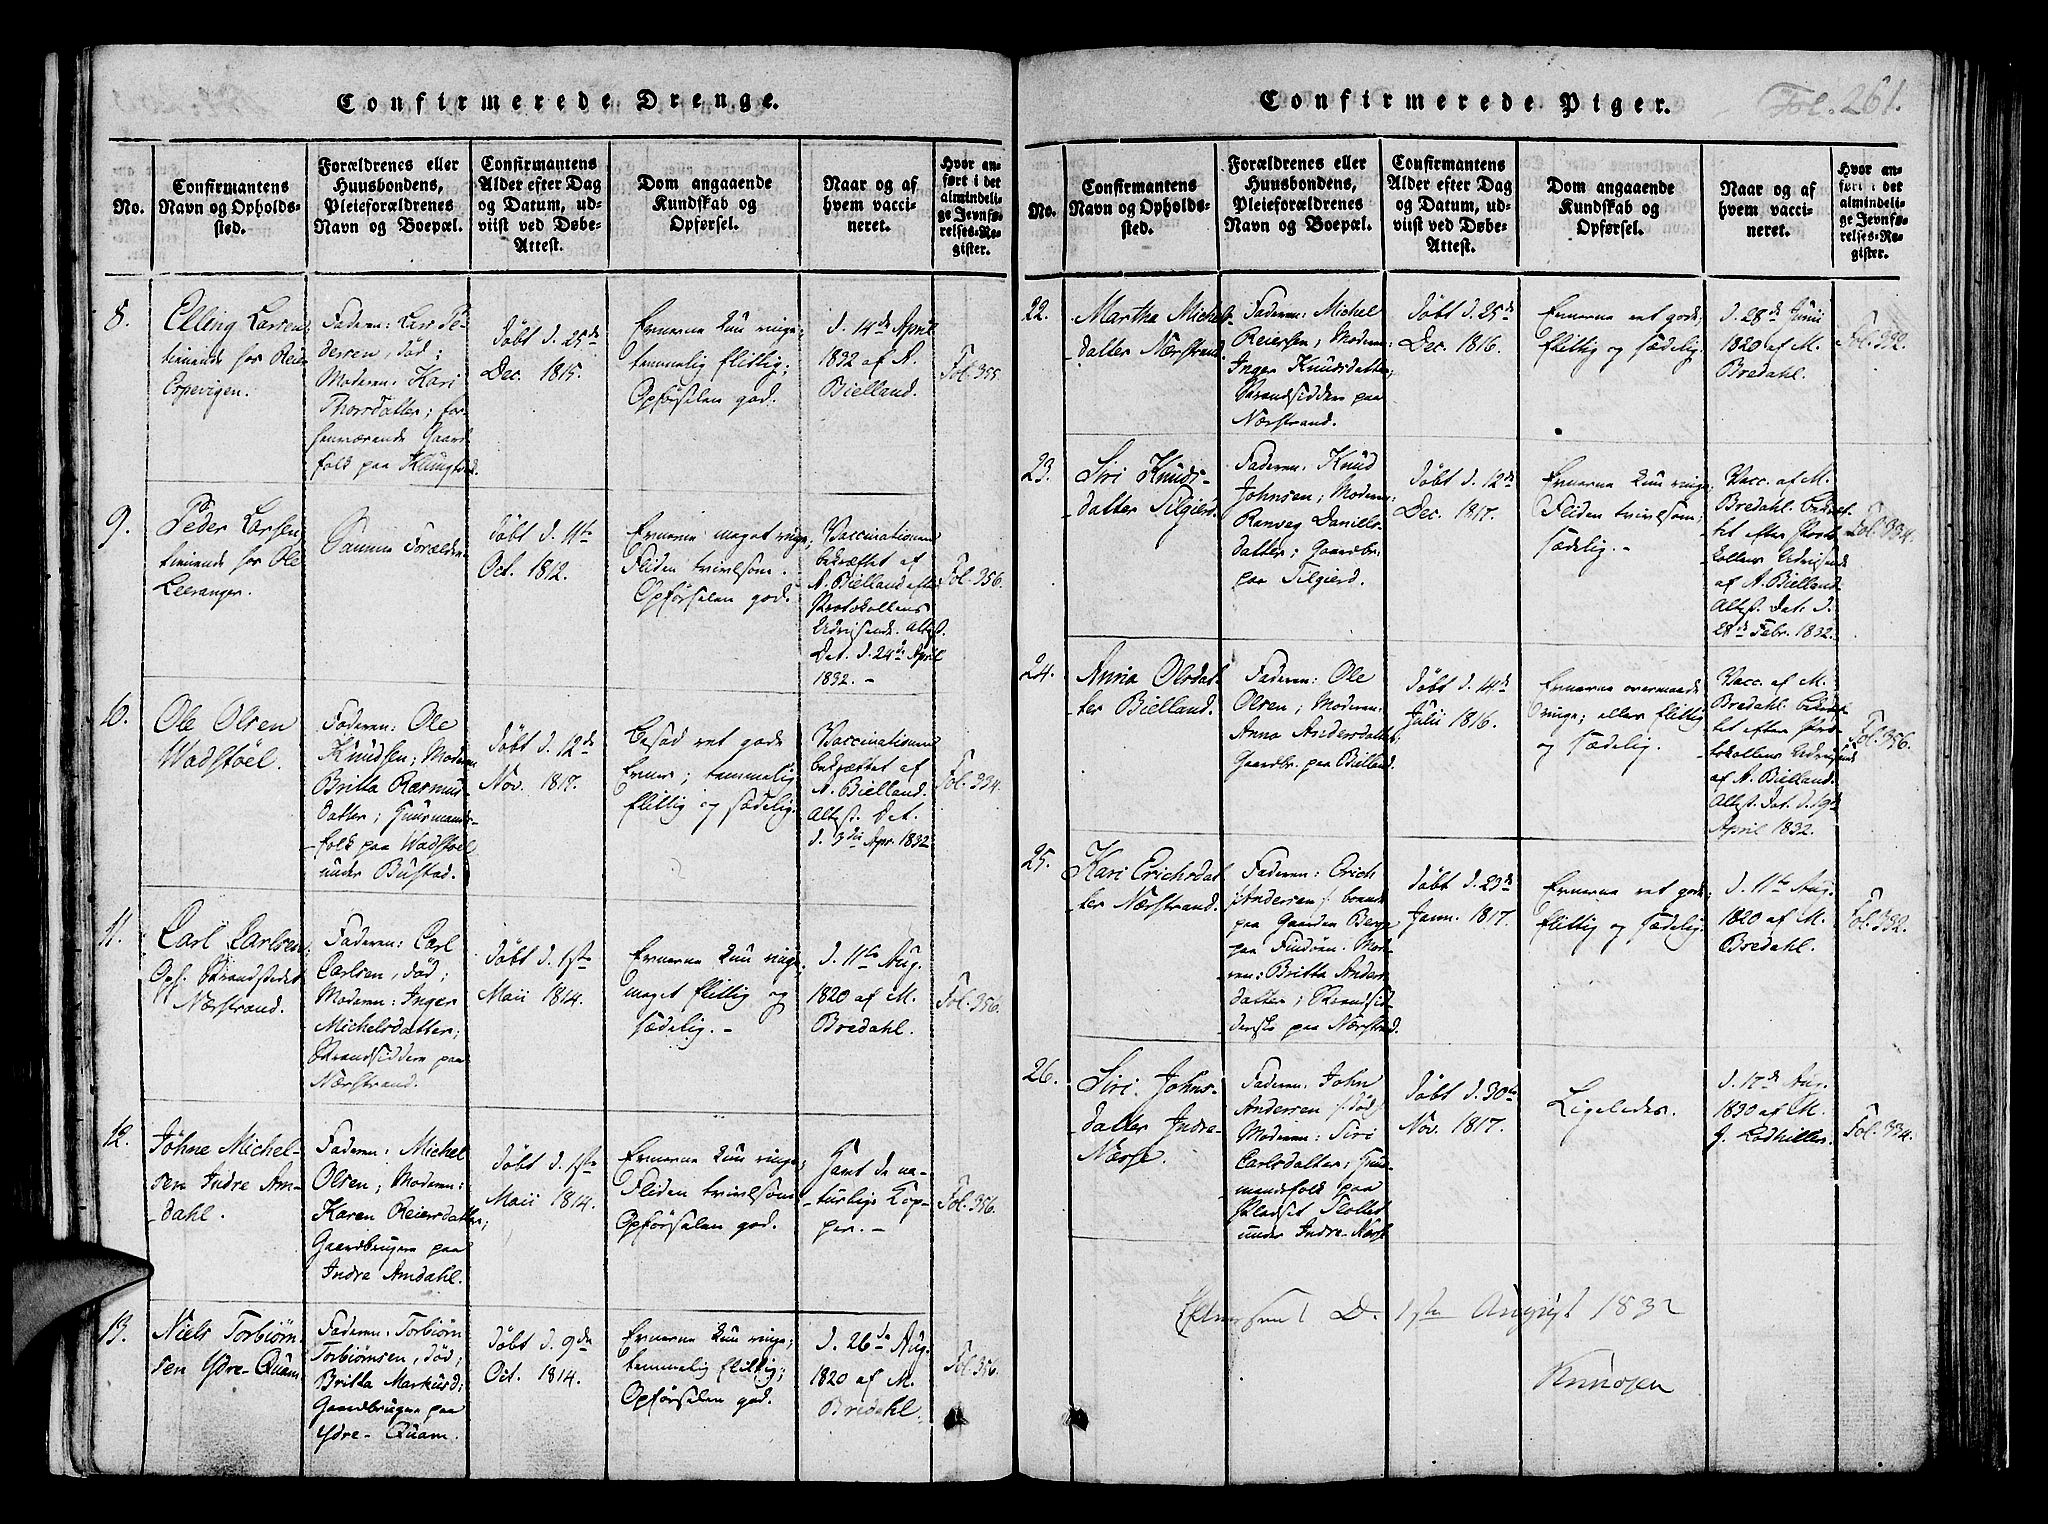 Confirmerede Drenge.
No.
Confirmantens
Navn og Opholds-
sted.
Forældrenes eller
Huusbondens,
Pleieforældrenes
Navn og Boepæl.
Confirmantens
Alder efter Dag
og Datum, ud-
viist ved Døbe-
Attest.
Dom angaaende
Kundskab og
Opførsel.
Naar og af
hvem vacci-
neret.
Hvor an-
ført i det
almindeli-
ge Jevnfø-
relses-Re-
gister.
8.
Elling Larsen
tienende hos Reier
Copevigen.
Faderen: Lars Pe-
dersen, død;
Moderen: Kari
Thorsdatter; for-
henværende Gaard-
folk paa
Døbt d. 25de
Dec. 1815.
Evnerne kun ringe;
temmelig flittig;
Opførselen god.
d. 14de April
1832 af A.
Bielland.
Fol. 355.
9.
Peder Larsen
tienende hos Ole
Leeranger.
Samme Forældre.
Døbt d. 4de
Oct. 1812.
Evnerne meget ringe;
Fliden tvivlsom.
Opførselen god.
Vaccinationen
bekræftet af
A. Bielland efter
Protokollens
Udvisende. Attest.
Dat. d. 24de April
1832. -
Fol. 356.
10.
Ole Olsen
Wadstøel.
Faderen: Ole
Knudsen; Moderen
Britta Rasmus-
datter; Huusmands-
folk paa Wadstøel
under Bustad.
Døbt d. 12de
Nov. 1817.
Besad ret gode
Evner; temmelig
flittig og sædelig.
Vaccinationen
bekræftet af
A. Bielland.
Attest. Dat.
d. 3die Apr. 1832
Fol. 334.
11.
Carl Carlsen,
Oph. Strandstedet
Nærstrand.
Faderen: Carl
Carlsen, død;
Moderen: Inger
Michelsdatter;
Strandsiddere paa
Nærstrand.
Døbt d. 1ste
Maii 1814.
Evnerne kun ringe,
meget flittig og
sædelig. -
d. 11te Aug.
1820 af M.
Bredahl.
Fol. 356.
12.
Johne Michel-
sen Indre Am-
dahl.
Faderen: Michel
Olsen; Moderen:
Karen Reiersdatter;
Gaardbrugere paa
Indre Amdahl.
Døbt d. 1ste
Maii 1814.
Evnerne kun ringe;
Fliden tvivlsom
Opførselen god.
Havt de na-
turlige Kop-
per. -
Fol. 356.
13.
Niels Torbiørn-
sen Ydre-Quam
Faderen: Torbiørn
Torbiørnsen, død;
Britta Markusd;
Gaardbrugere paa
Ydre-Quam.
Døbt d. 9de
Oct. 1814.
Evnerne kun ringe;
temmelig flittig;
Opførselen god.
d. 26de Aug.
1820 af M.
Bredahl.
Fol. 356.
Confirmerede Piger.
Fol. 261.
No.
Confirmantens
Navn og Opholds-
sted.
Forældrenes eller
Huusbondens,
Pleieforældrenes
Navn og Boepæl.
Confirmantens
Alder efter Dag
og Datum, ud-
viist ved Døbe-
Attest.
Dom angaaende
Kundskab og
Opførsel.
Naar og af
hvem vacci-
neret.
Hvor an-
ført i det
almindeli-
ge Jevnfø-
relses-Re-
gister.
22.
Martha Michels-
datter Nærstrand.
Faderen: Michel
Reiersen; Moderen:
Inger Knudsdatter;
Strandsiddere paa
Nærstrand.
Døbt d. 25de
Dec. 1816.
Evnerne ret gode,
flittig og sædelig.
d. 28de Junii
1820 af M.
Bredahl.
Fol. 332.
23.
Siri Knuds-
datter Tilgierd.
Faderen: Knud
Johnsen; Moderen:
Ranveg Daniels-
datter; Gaardbr.
paa Tilgierd.
Døbt d. 12de
Dec. 1817.
Evnerne kun ringe,
Fliden tvivlsom;
sædelig. -
Vacc. af M.
Bredahl. Bekræf-
tet efter Proto-
kollens Udvisende
af A. Bielland.
Attest. Dat. d.
28de Febr. 1832.
Fol. 334.
24.
Anna Olsdat-
ter Bielland.
Faderen: Ole
Olsen; Moderen:
Anna Andersdatter;
Gaardbr. paa Bielland.
Døbt d. 14de
Julii 1816.
Evnerne overmaade
ringe; ellers flittig
og sædelig.
Vacc. af M.
Bredahl. Bekræf-
tet efter Pro-
tokollens Udvisende
af A. Bielland.
Attest. Dat. d. 19de
April 1832.
Fol. 356.
25.
Kari Erichsdat-
ter Nærstrand.
Faderen: Erich
Andersen, boende
paa Gaarden Berge
paa Findøen. Mode-
ren: Britta Anders-
datter; Strandsid-
derske paa Nærstrand.
Døbt d. 23de
Jann. 1817.
Evnerne ret gode;
flittig og sædelig.
d. 11te Aug.
1820 af M.
Bredahl.
Fol. 332.
26.
Siri Johns-
datter Indre-
Næsse.
Faderen: John
Andersen /:død:/
Moderen: Siri
Carlsdatter; Huus-
mandsfolk paa
Pladset
under Indre-Næsse
Døbt d. 30te
Nov. 1817.
Ligeledes.
d. 17de Aug.
1830 af M.
G. Lodhiller.
Fol. 334.
D. 1ste August 1832